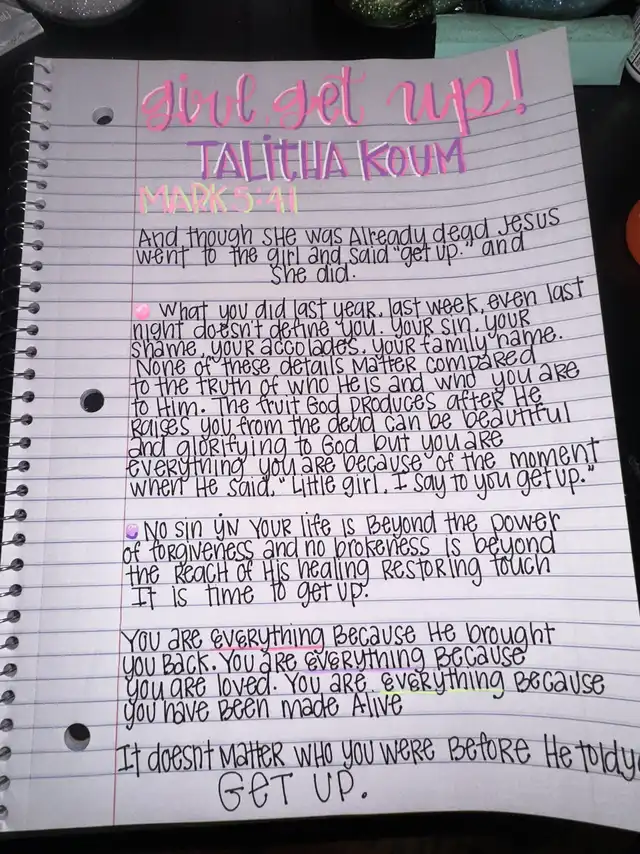 girl, get up!
TALITHA KOUM
MARK 5:41
And though SHE was Already dead Jesus
went to the girl and said "get up." and
she did.
What you did last year, last week, even last
night doesn't define you. Your sin, your
shame, your accolades, your family name.
None of these details Matter compared
to the truth of who He is and who you are
to Him. The fruit God produces after He
Raises you from the dead can be beautiful
and glorifying to God but you are
everything you are because of the moment
when He said, "Little girl, I say to you get up."
No sin in your life is Beyond the power
of forgiveness and no brokeness is beyond
the Reach of His healing Restoring touch
It is time to get up.
You are everything Because He brought
you Back. You are everything Because
you are loved. You are everything Because
you have Been made Alive
It doesn't Matter who you were Before He told y
GET UP.